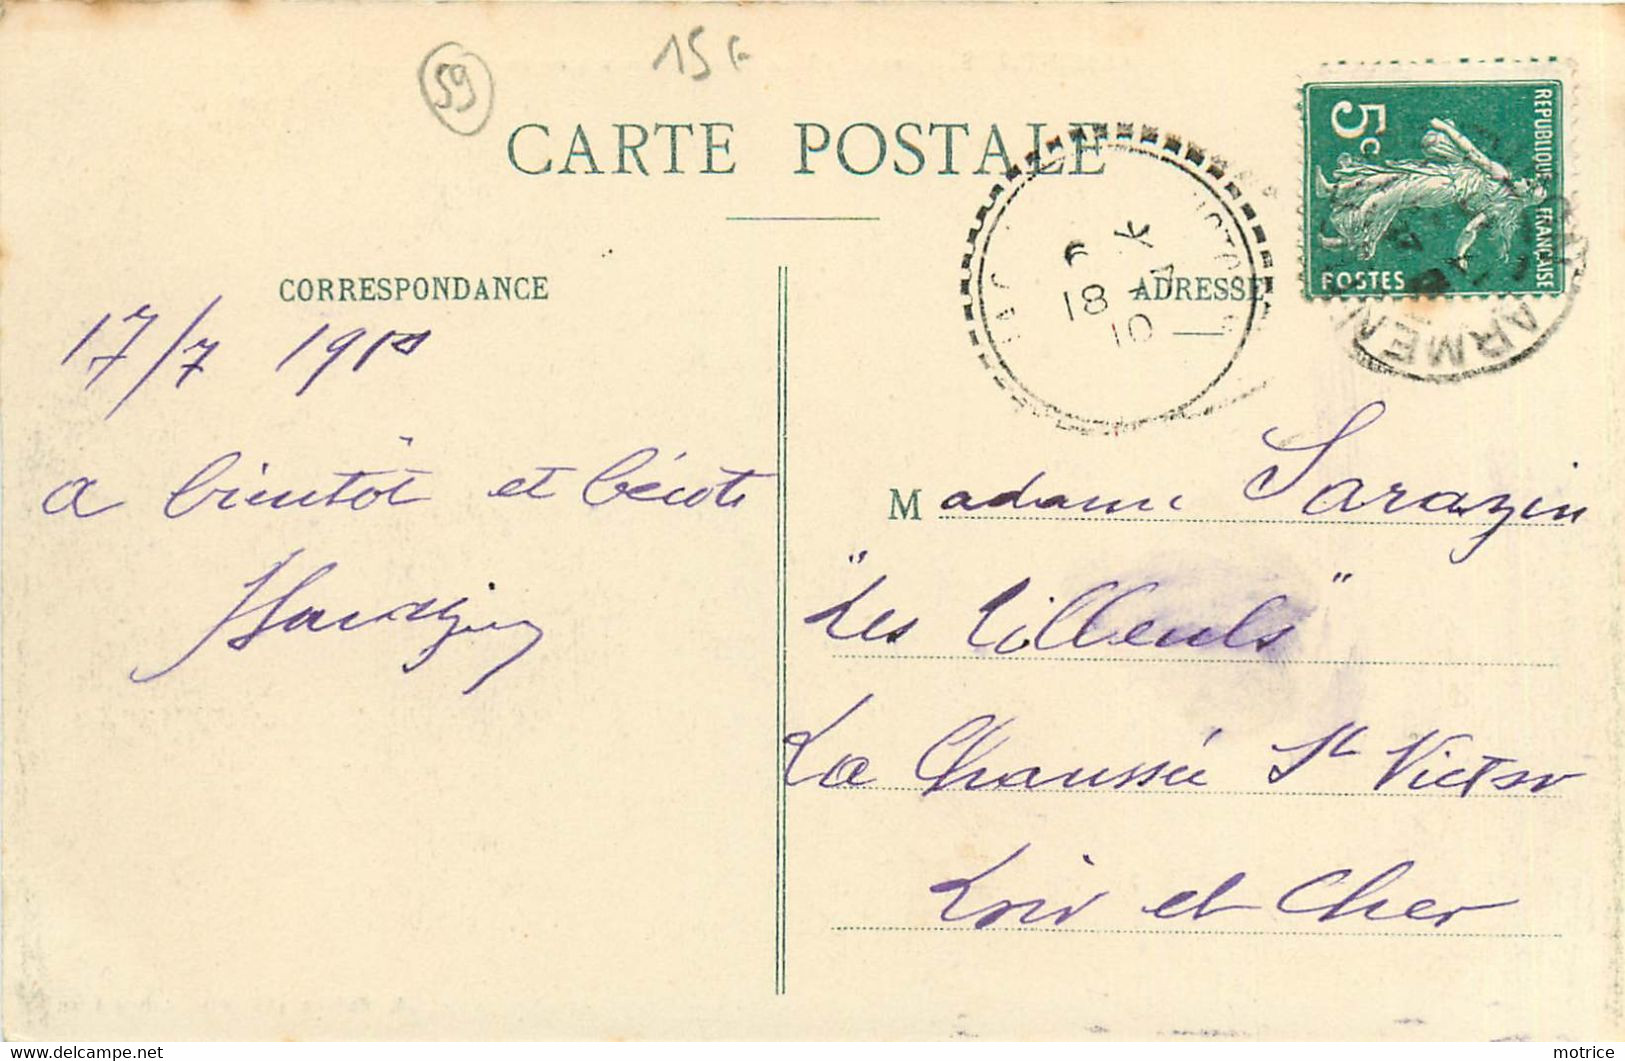 59
15
CARTE POSTALE
5c
REPUBLIQUE FRANÇAISE
POSTES
ARMEN
6
18
10
CORRESPONDANCE
ADRESSE
17/7 1910
a bientôt et bécots
Madame Sarazin
"Les Tilleuls"
La Chaussée St Victor
Loir et Cher
motrice